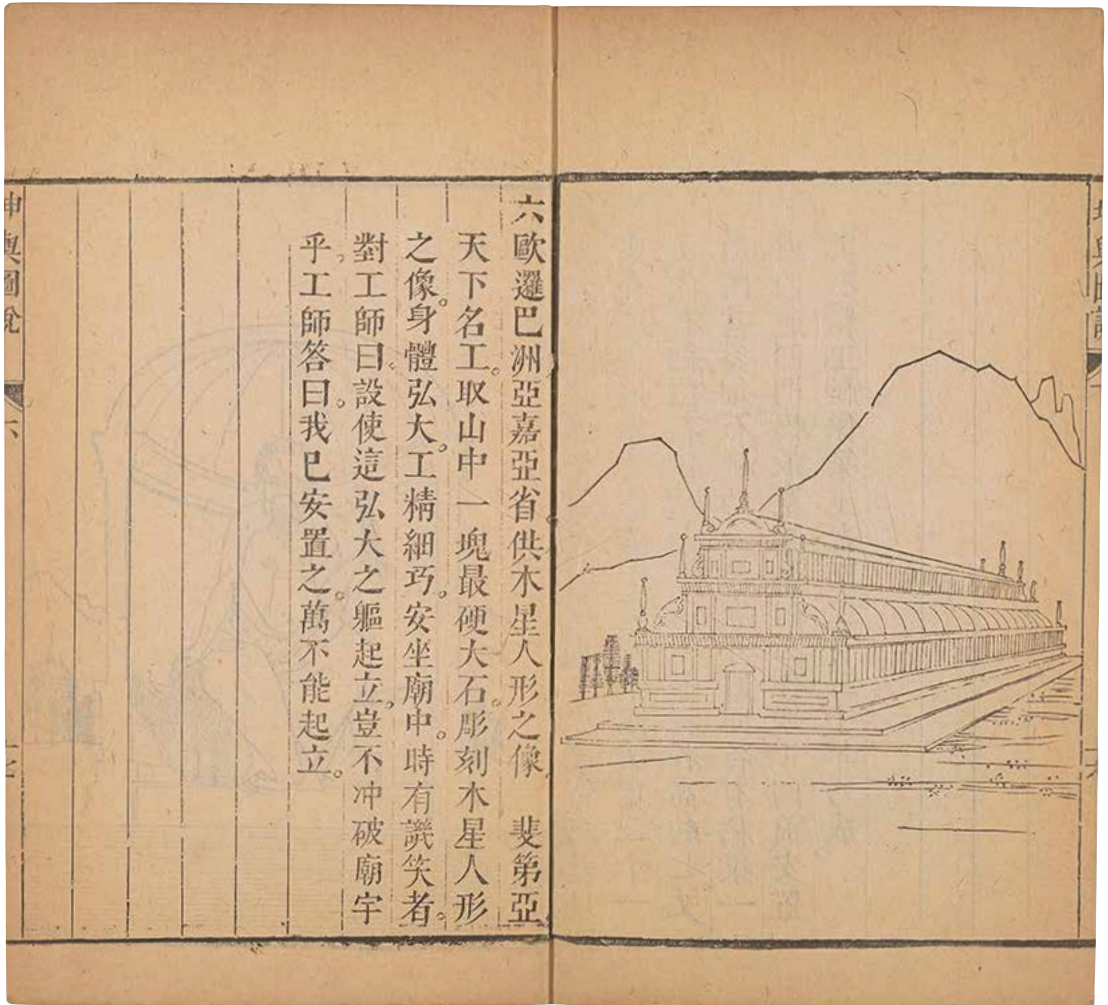 六歐邏巴洲亞嘉亞省供木星人形之像　斐第亞
天下名工。取山中一塊最硬大石。彫刻木星人形
之像。身體弘大。工精細巧。安坐廟中。時有譏笑者。
對工師曰。設使這弘大之軀起立。豈不冲破廟宇
乎。工師答曰。我已安置之。萬不能起立。
坤輿圖說
六